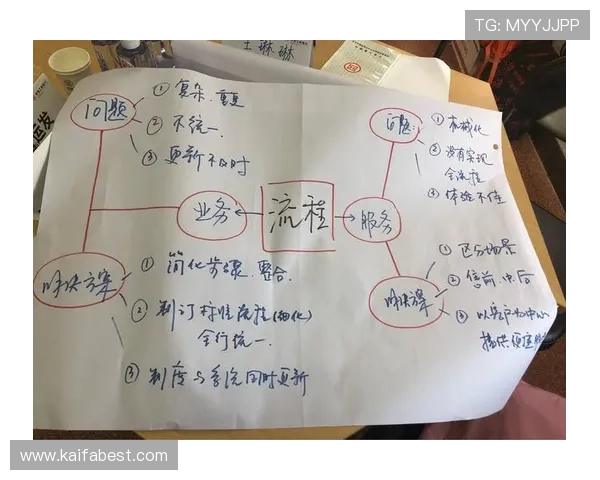 TG: MYYJJPP
王琳琳
问题
① 复杂、重复
② 不统一
③ 更新不及时
问题:
① 机械化
② 没有实现
全流程
③ 体验不佳
业务
流程
服务
解决方案
① 简化步骤、整合
② 制订标准流程(细化)
全行统一
③ 制度与系统同时更新
解决方案
① 区分场景
② 售前、中、后
③ 以客户为中心
提供便捷服
www.kaifabest.com